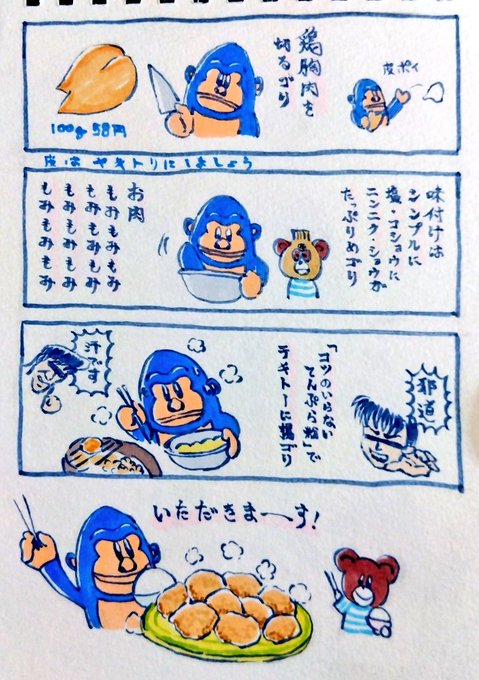 鶏胸肉を
切るゴリ
皮ポイ
100g 58円
皮はヤキトリにしましょう
味付けは
シンプルに
塩・コショウに
ニンニク・ショウガ
たっぷりめゴリ
お肉
もみもみもみ
もみもみもみ
もみもみもみ
もみもみもみ
邪道
「コツのいらない
てんぷら粉」で
テキトーに揚ゴリ
汗です
いただきまーす!